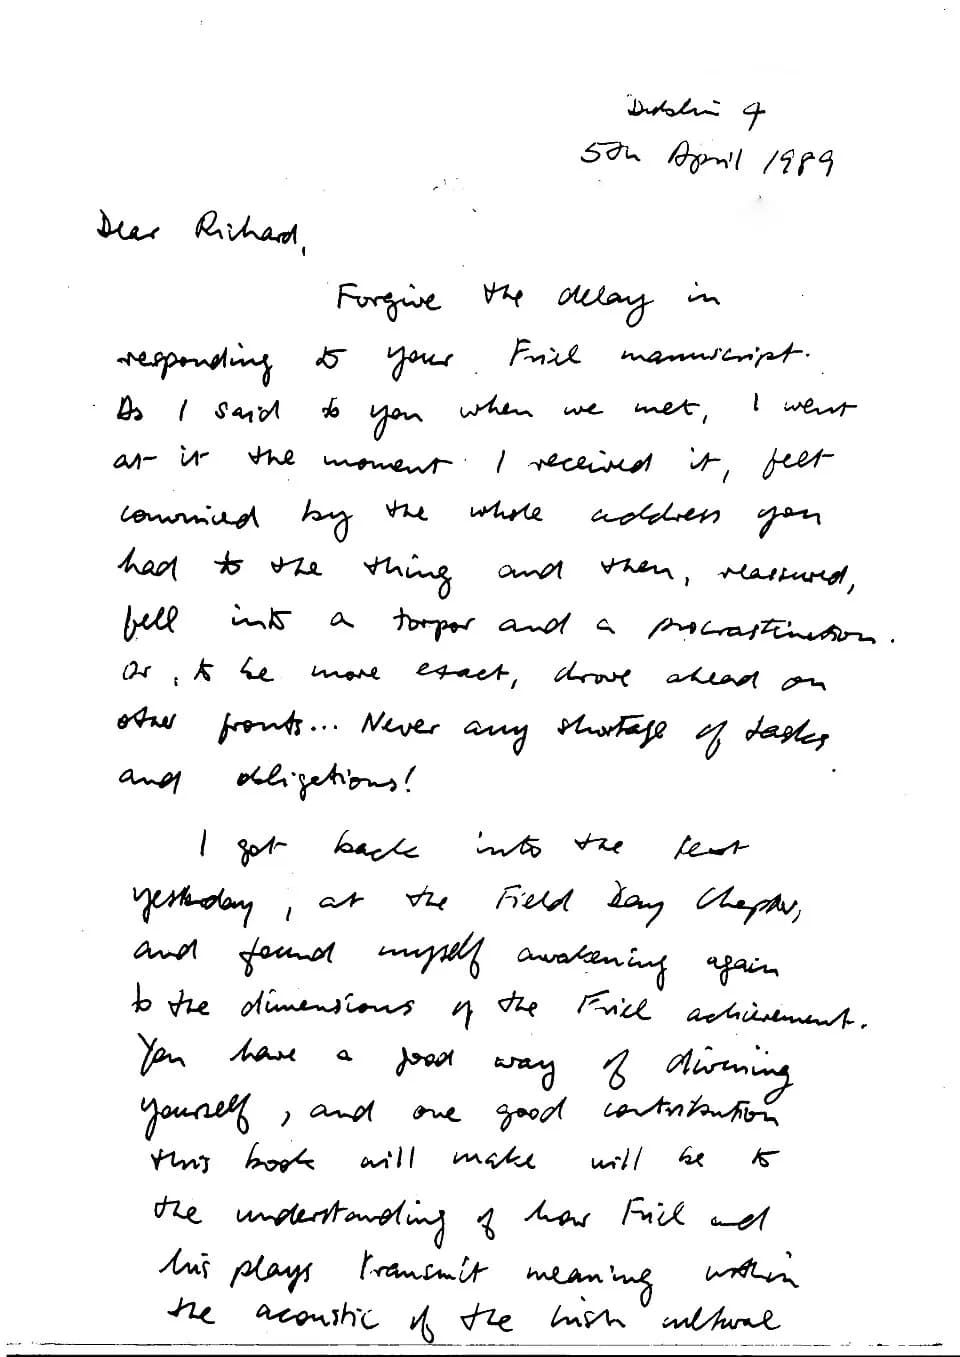 Dublin 4
5th April 1989
Dear Richard,
Forgive the delay in
responding to your Friel manuscript.
As I said to you when we met, I went
at it the moment I received it, felt
convinced by the whole address you
had to the thing and then, reassured,
fell into a torpor and a procrastination.
Or, to be more exact, drove ahead on
other fronts... Never any shortage of tasks
and obligations!
I got back into the text
yesterday, at the Field Day Chapter,
and found myself awakening again
to the dimensions of the Friel achievement.
You have a good way of divining
yourself, and one good contribution
this book will make will be to
the understanding of how Friel and
his plays transmit meaning within
the acoustic of the Irish cultural